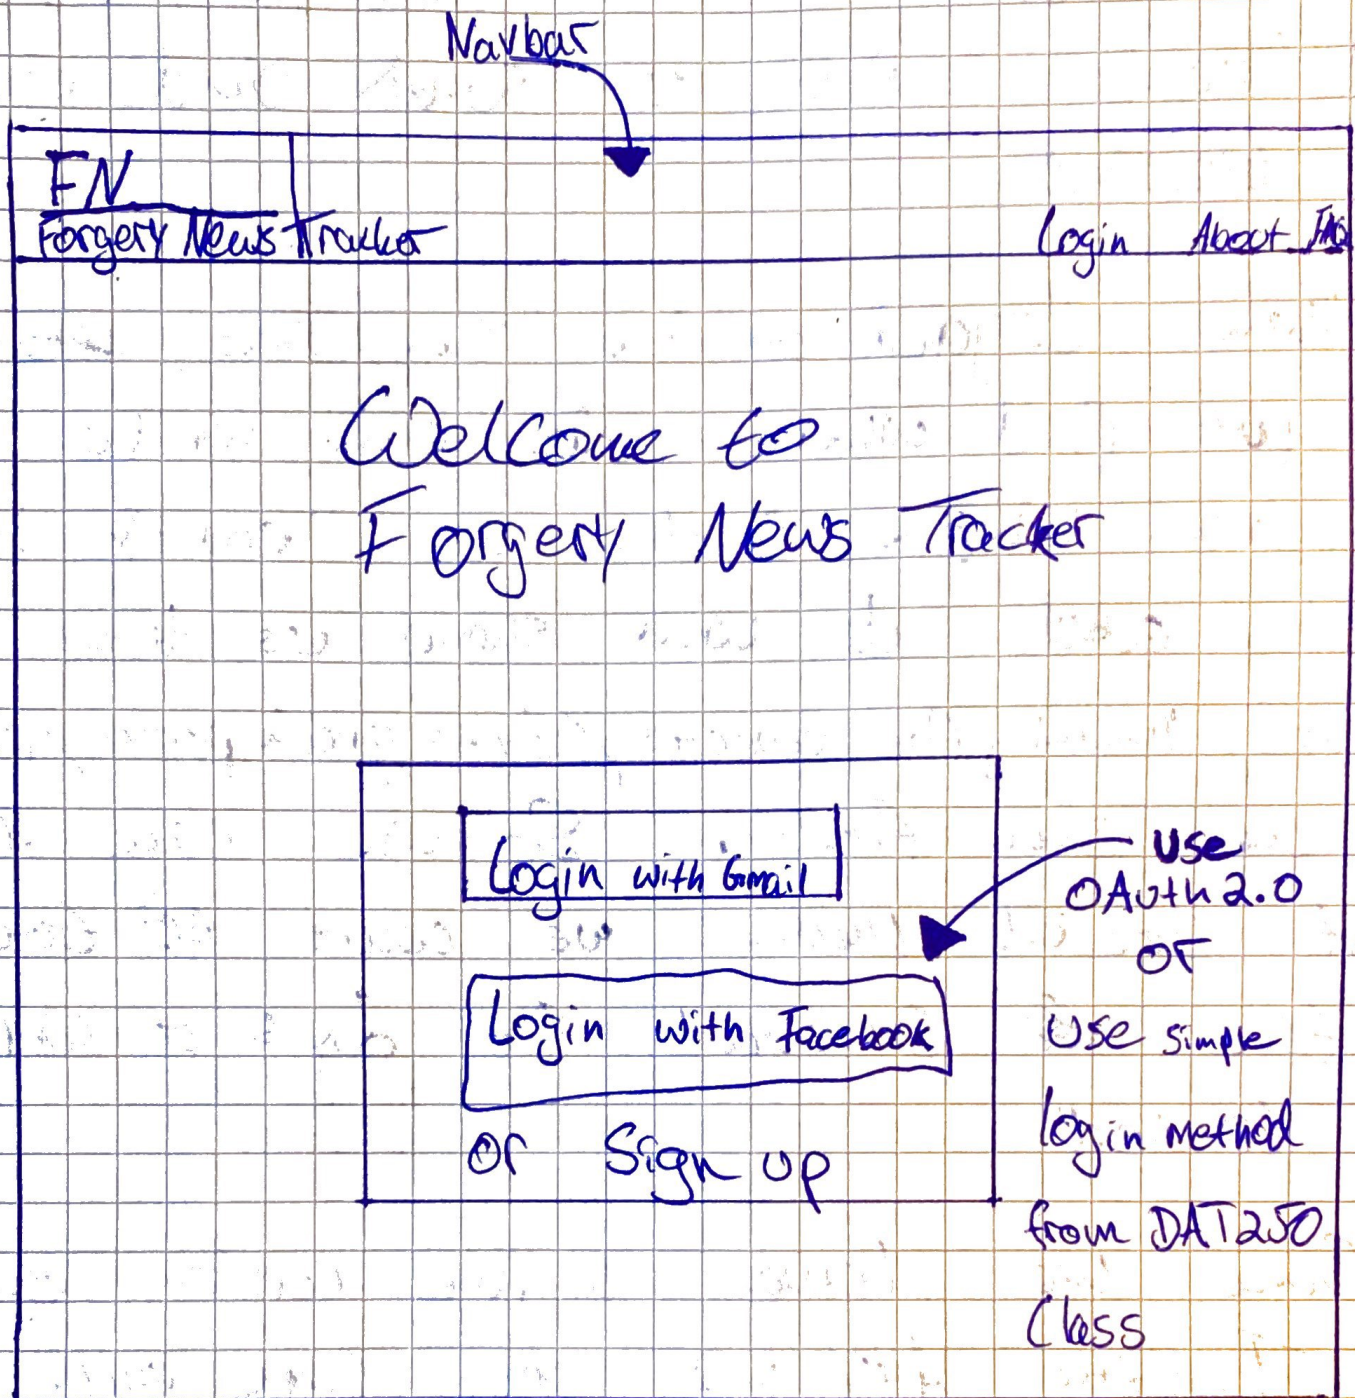 Navbar
FN
Forgery News Tracker
Login About FAQ
Welcome to
Forgery News Tracker
Login with Gmail
Login with Facebook
or Sign up
Use
OAuth 2.0
or
Use simple
login method
from DAT250
Class